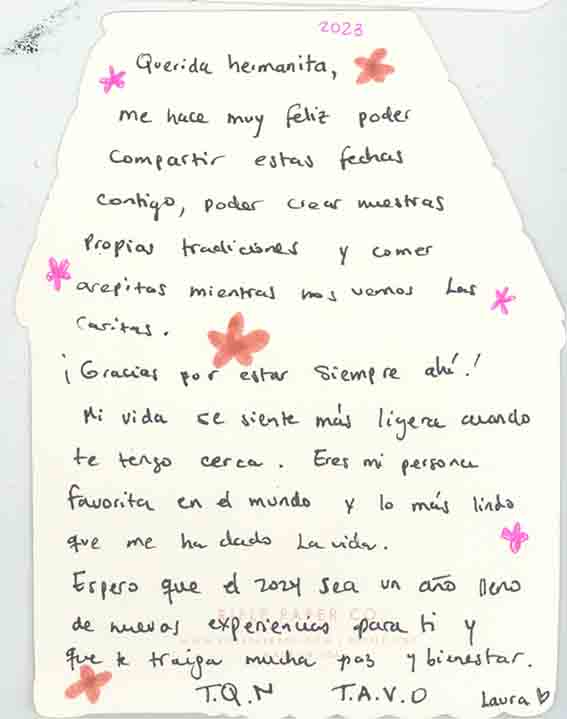 2023
Querida hermanita,
me hace muy feliz poder
compartir estas fechas
contigo, poder crear nuestras
propias tradiciones y comer
arepitas mientras nos vemos las
caritas.
¡Gracias por estar siempre ahí!
Mi vida se siente más ligera cuando
te tengo cerca. Eres mi persona
favorita en el mundo y lo más lindo
que me ha dado la vida.
Espero que el 2024 sea un año lleno
RIFLE PAPER CO.
de nuevas experiencias para ti y
que te traiga mucha paz y bienestar.
T.Q.N T.A.V.O Laura